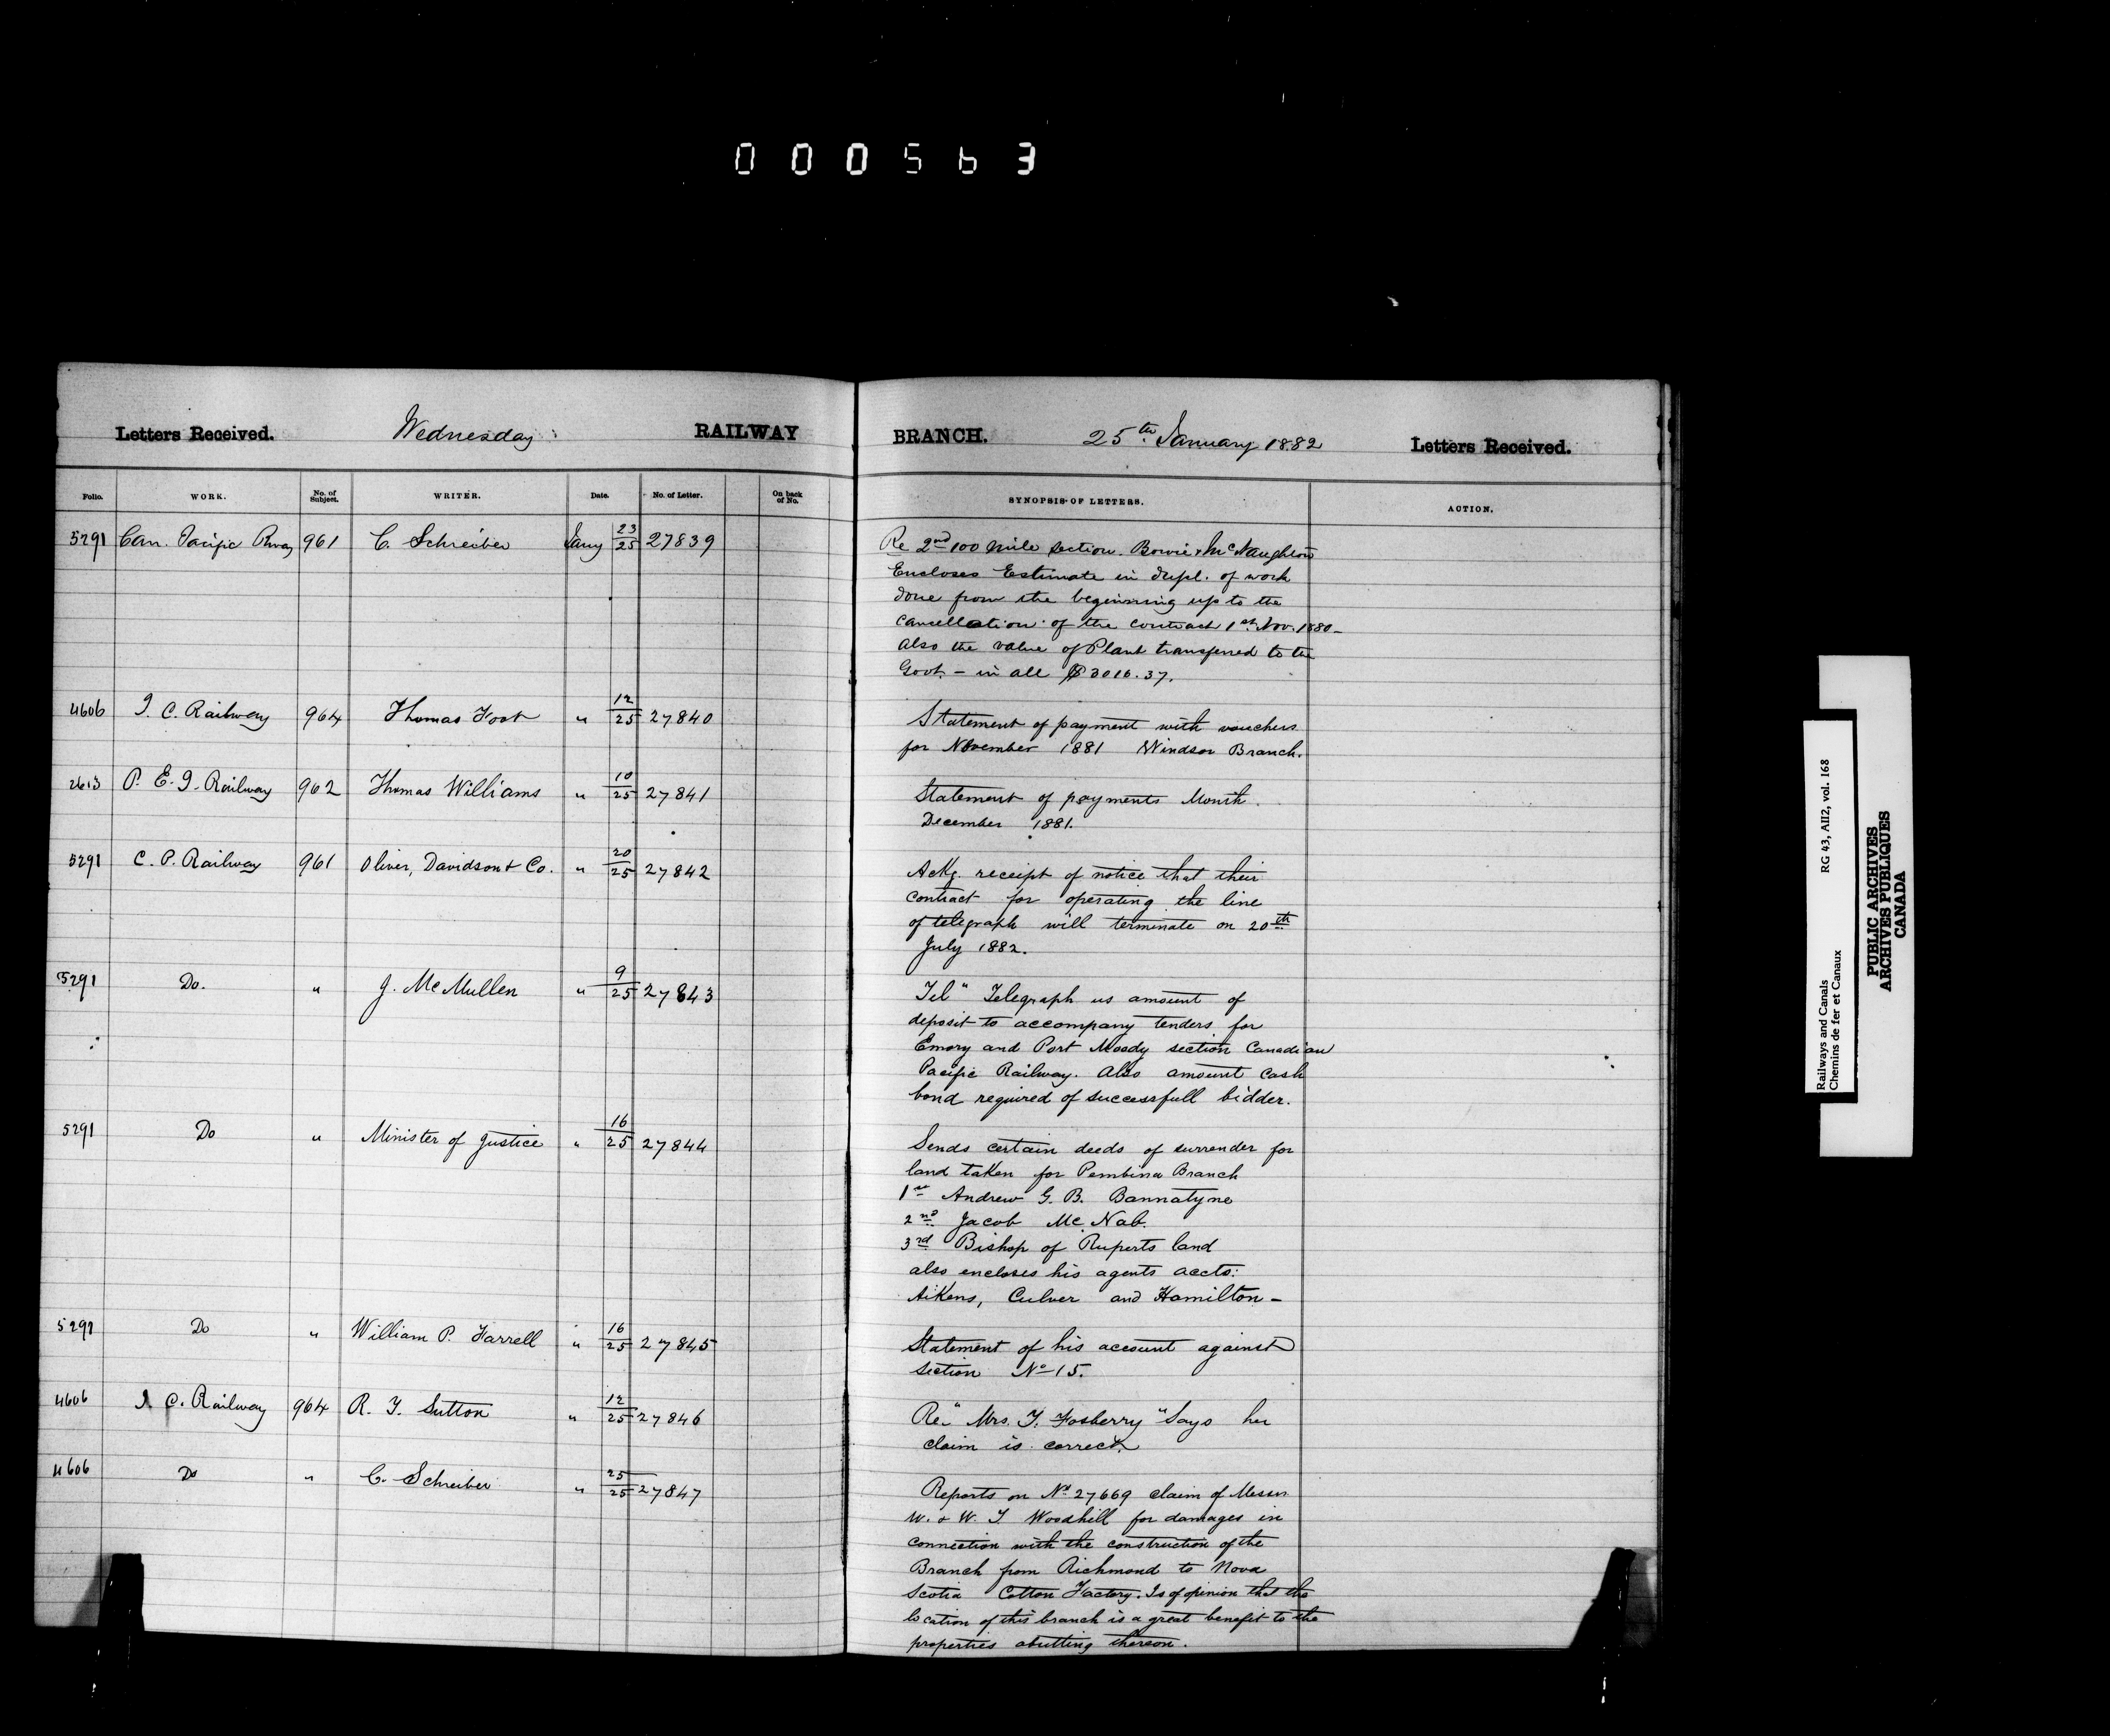 000563
Letters Received. Wednesday RAILWAY BRANCH. 25th January 1882 Letters Received.
Folio. WORK. No. of Subject. WRITER. Date. No. of Letter. On back of No. SYNOPSIS OF LETTERS. ACTION.
5291 Can. Pacific Rway 961 C. Schreiber Jany 23/25 27839 Re 2nd 100 mile section. Bowie & McNaughton
Encloses Estimate in dupl. of work
done from the beginning up to the
cancellation of the contract 1st Nov. 1880 –
Also the value of Plant transferred to the
Govt. – in all $3016.37.
4606 I. C. Railway 964 Thomas Foot " 12/25 27840 Statement of payment with vouchers
for November 1881 Windsor Branch.
2613 P. E. I. Railway 962 Thomas Williams " 10/25 27841 Statement of payments Month
December 1881.
5291 C. P. Railway 961 Oliver, Davidson & Co. " 20/25 27842 Ackg. receipt of notice that their
contract for operating the line
of telegraph will terminate on 20th
July 1882.
5291 Do. " J. McMullen " 9/25 27843 Tel" Telegraph us amount of
deposit to accompany tenders for
Emory and Port Moody section Canadian
Pacific Railway. Also amount cash
bond required of successfull bidder.
5291 Do " Minister of Justice " 16/25 27844 Sends certain deeds of surrender for
land taken for Pembina Branch
1st Andrew G. B. Bannatyne
2nd Jacob McNab.
3rd Bishop of Ruperts land
also encloses his agents accts:
Aikens, Culver and Hamilton –
5291 Do " William P. Farrell " 16/25 27845 Statement of his account against
section No 15.
4606 I. C. Railway 964 R. T. Sutton " 12/25 27846 Re" Mrs. T. Fosberry" Says her
claim is correct.
4606 Do " C. Schreiber " 25/25 27847 Reports on No 27669 claim of Messrs
W. & W. T. Woodhill for damages in
connection with the construction of the
Branch from Richmond to Nova
Scotia Cotton Factory. Is of opinion that the
location of this branch is a great benefit to the
properties abutting thereon.
Railways and Canals RG 43, AII2, vol. 168
Chemins de fer et Canaux
PUBLIC ARCHIVES
ARCHIVES PUBLIQUES
CANADA